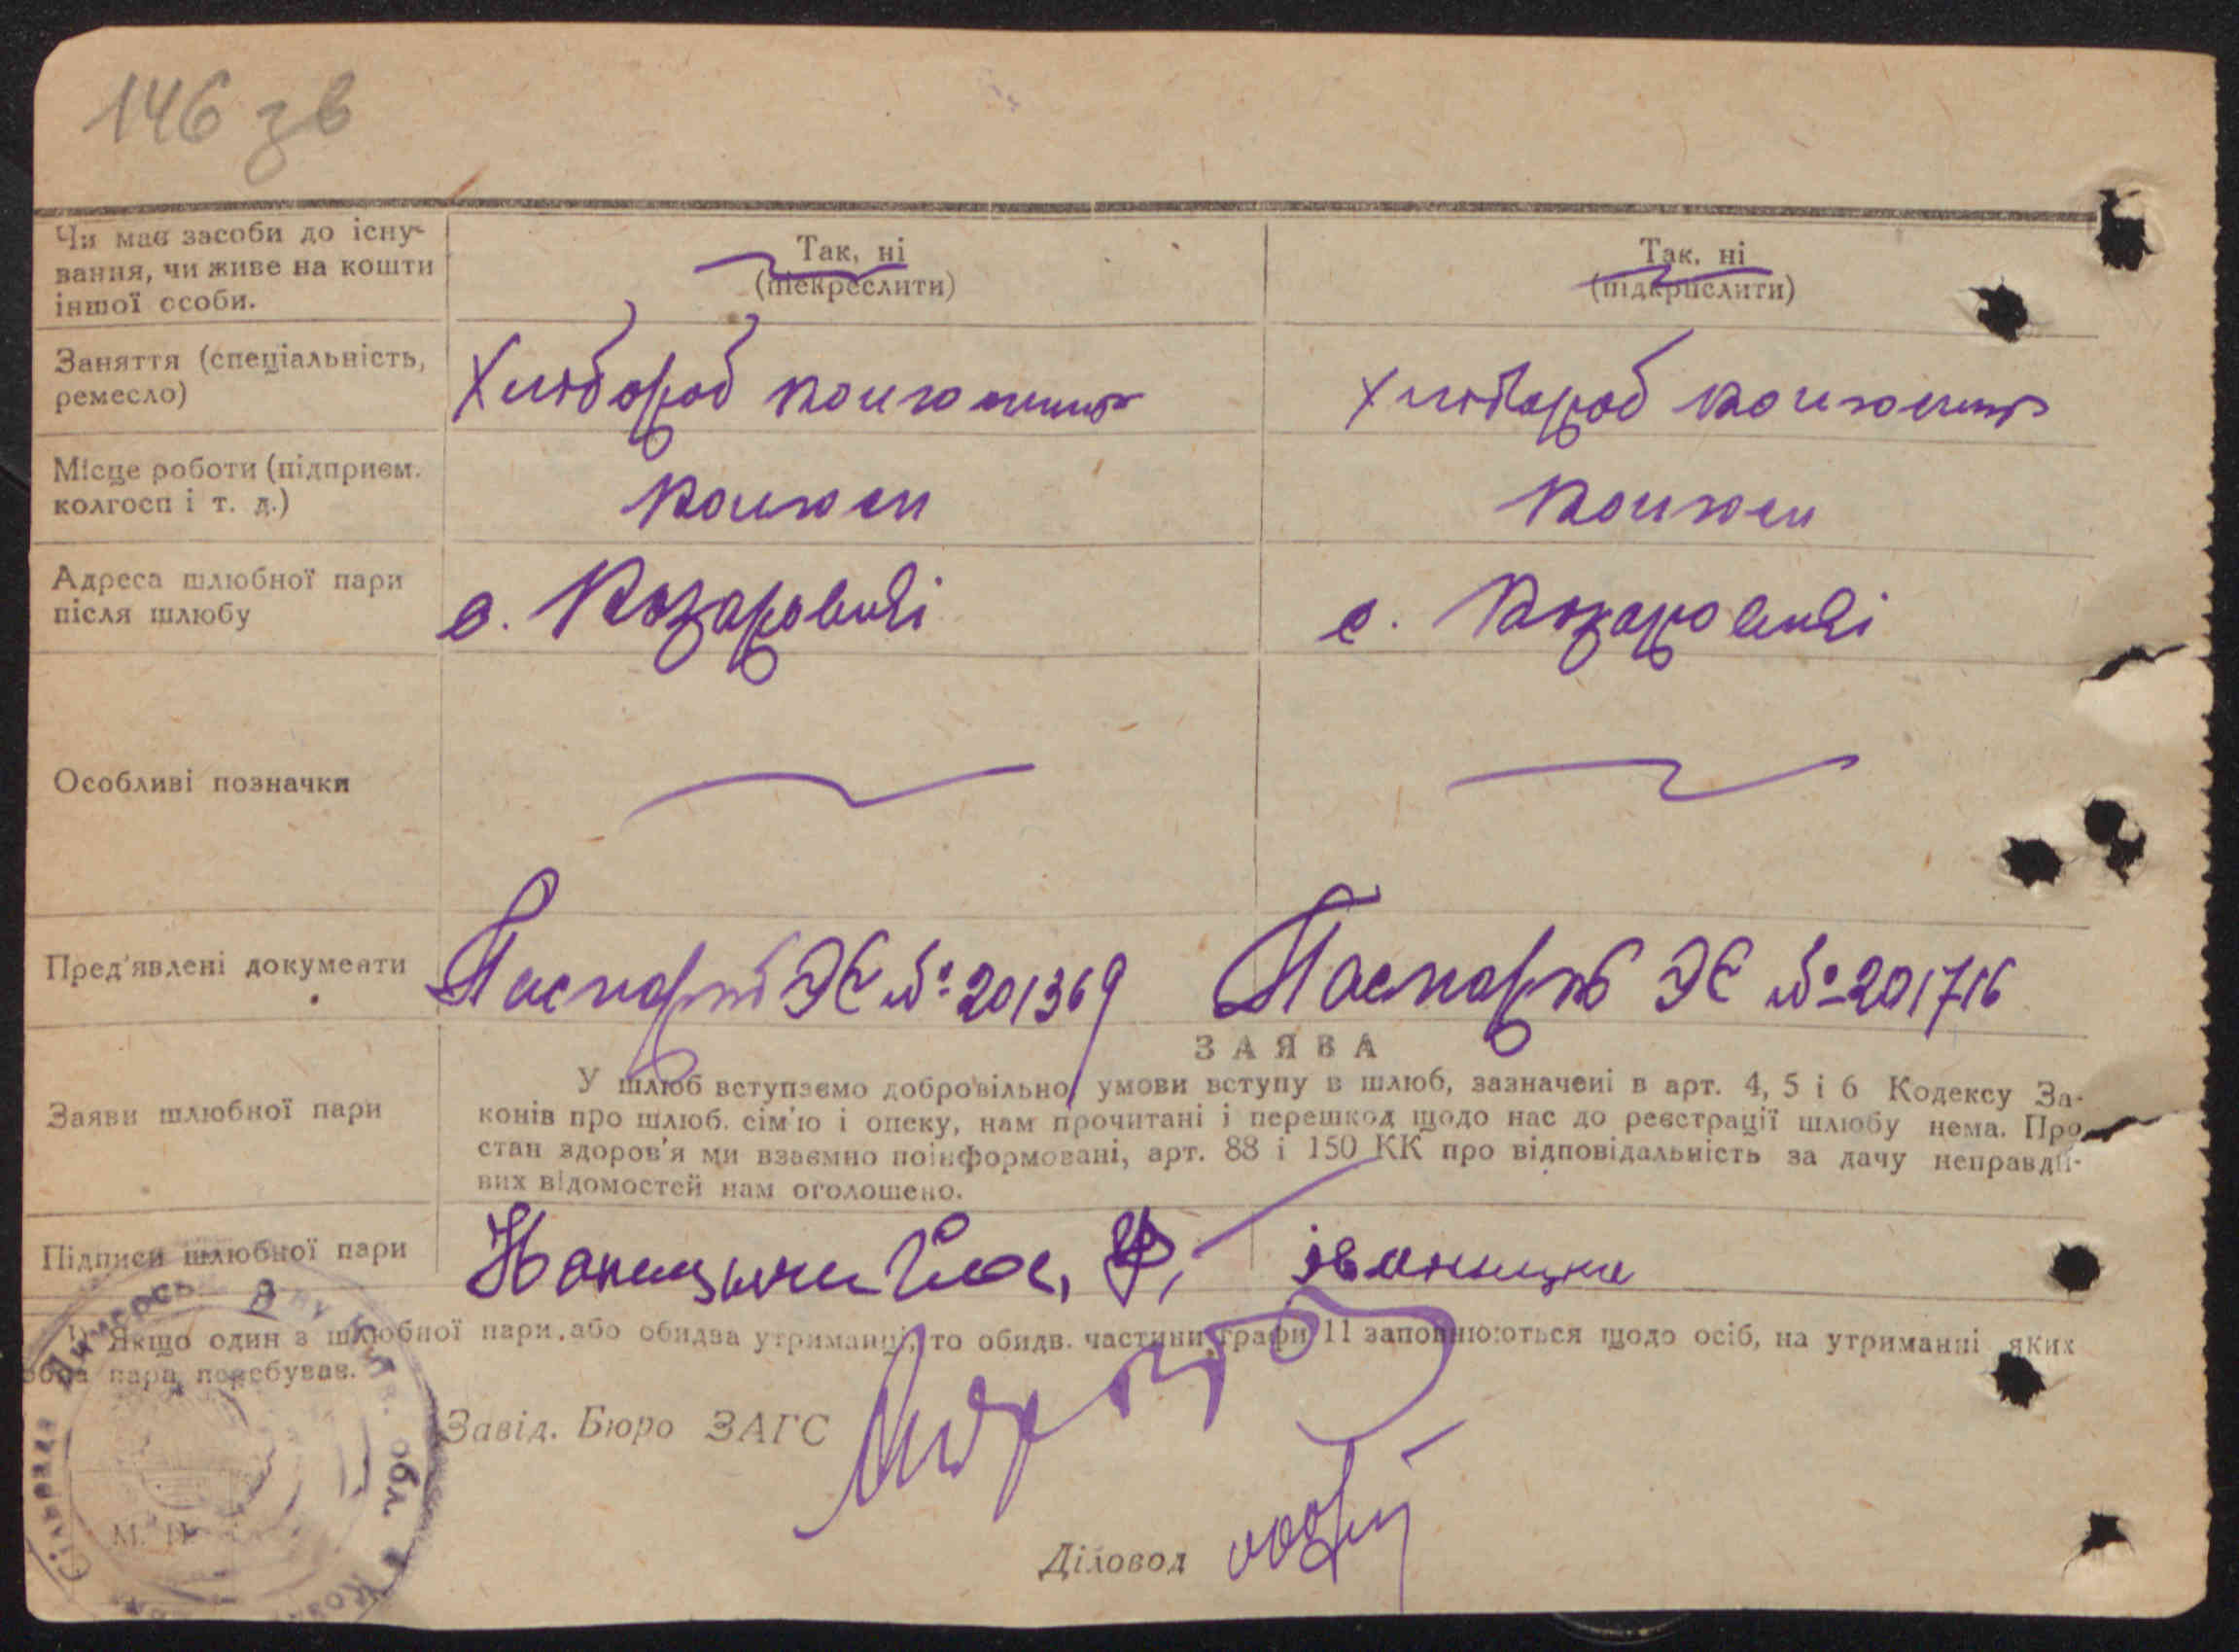 146 зв
Чи має засоби до існу-
вання, чи живе на кошти
іншої особи.
Так, ні
(підкреслити)
Так, ні
(підкрислити)
Заняття (спеціальність,
ремесло)
Хлібороб колгоспник
Хлібороб колгоспник
Місце роботи (підприєм.
колгосп і т. д.)
Колгосп
Колгосп
Адреса шлюбної пари
після шлюбу
с. Козаровичі
с. Козаровичі
Особливі позначки
Пред'явлені документи
Паспорт ЭЄ № 201369
Паспорт ЭЄ № 201716
ЗАЯВА
Заяви шлюбної пари
У шлюб вступаємо добровільно, умови вступу в шлюб, зазначені в арт. 4, 5 і 6 Кодексу За-
конів про шлюб. сім'ю і опеку, нам прочитані і перешкод щодо нас до реєстрації шлюбу нема. Про
стан здоров'я ми взаємно поінформовані, арт. 88 і 150 КК про відповідальність за дачу неправди-
вих відомостей нам оголошено.
Підписи шлюбної пари
іваницка
¹) Якщо один з шлюбної пари або обидва утриманці, то обидв. частини графи 11 заповнюються щодо осіб, на утриманні яких
пара перебуває.
Завід. Бюро ЗАГС
М. П.
Діловод
Сільрада обл.